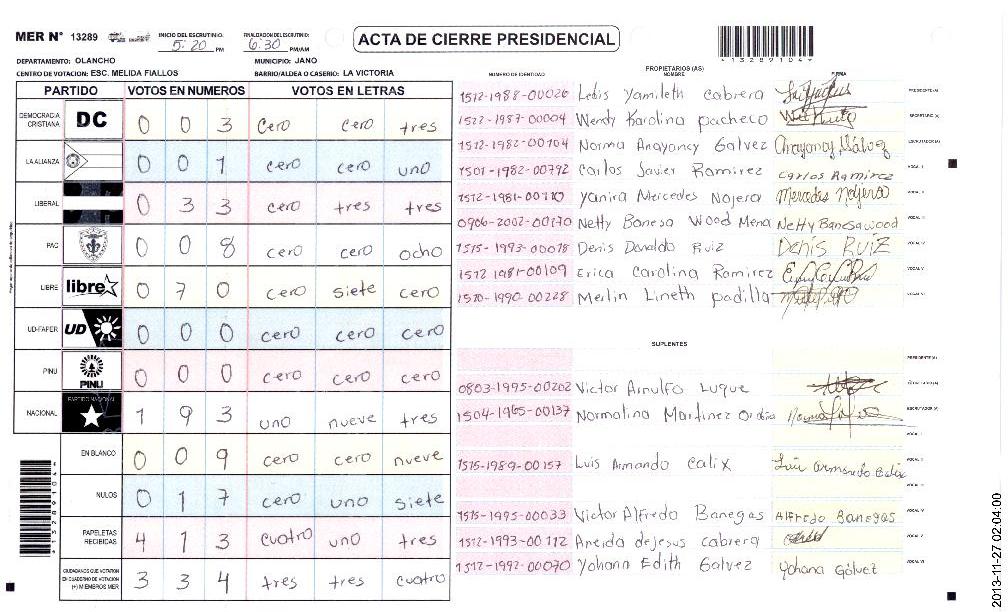 MER N° 13289 INICIO DEL ESCRUTINIO: 5:20 PM FINALIZACION DEL ESCRUTINIO: 6:30 PM/AM
ACTA DE CIERRE PRESIDENCIAL
*13289104*
DEPARTAMENTO: OLANCHO MUNICIPIO: JANO
CENTRO DE VOTACION: ESC. MELIDA FIALLOS BARRIO/ALDEA O CASERIO: LA VICTORIA
PARTIDO VOTOS EN NUMEROS VOTOS EN LETRAS
DEMOCRACIA CRISTIANA DC 0 0 3 cero cero tres
LA ALIANZA 0 0 1 cero cero uno
LIBERAL 0 3 3 cero tres tres
PAC 0 0 8 cero cero ocho
LIBRE libre 0 7 0 cero siete cero
UD-FAPER UD 0 0 0 cero cero cero
PINU PINU 0 0 0 cero cero cero
NACIONAL PARTIDO NACIONAL 1 9 3 uno nueve tres
EN BLANCO 0 0 9 cero cero nueve
NULOS 0 1 7 cero uno siete
PAPELETAS RECIBIDAS 4 1 3 cuatro uno tres
CIUDADANOS QUE VOTARON EN CUADERNO DE VOTACION (+) MIEMBROS MER 3 3 4 tres tres cuatro
PROPIETARIOS (AS)
NUMERO DE IDENTIDAD NOMBRE FIRMA
1512-1988-00026 Ledis Yamileth Cabrera PRESIDENTE (A)
1512-1987-00004 Wendy Karolina pacheco SECRETARIO (A)
1512-1982-00104 Norma Arayancy Galvez ESCRUTADOR (A)
1501-1982-00792 Carlos Javier Ramirez Carlos Ramirez VOCAL I
1512-1981-00110 Yanira Mercedes Nojera Mercedes Nojera VOCAL II
0906-2002-00170 Netty Banesa Wood Mena Netty Banesa wood VOCAL III
1515-1993-00018 Denis Donaldo Ruiz DENIS RUIZ VOCAL IV
1512 1981-00109 Erica Carolina Ramirez VOCAL V
1510-1990-00228 Merlin Lineth padilla VOCAL VI
SUPLENTES
PRESIDENTE (A)
0803-1995-00202 Victor Arnulfo Luque SECRETARIO (A)
1504-1965-00137 Normalina Martinez ESCRUTADOR (A)
VOCAL I
1515-1989-00157 Luis Armando Calix Luis Armando Calix VOCAL II
VOCAL III
1515-1995-00033 Victor Alfredo Banegas Alfredo Banegas VOCAL IV
1512-1993-00112 Aneida dejesus cabrera VOCAL V
1512-1992-00070 Yohana Edith Galvez Yohana Gálvez VOCAL VI
2013-11-27 02:04:00